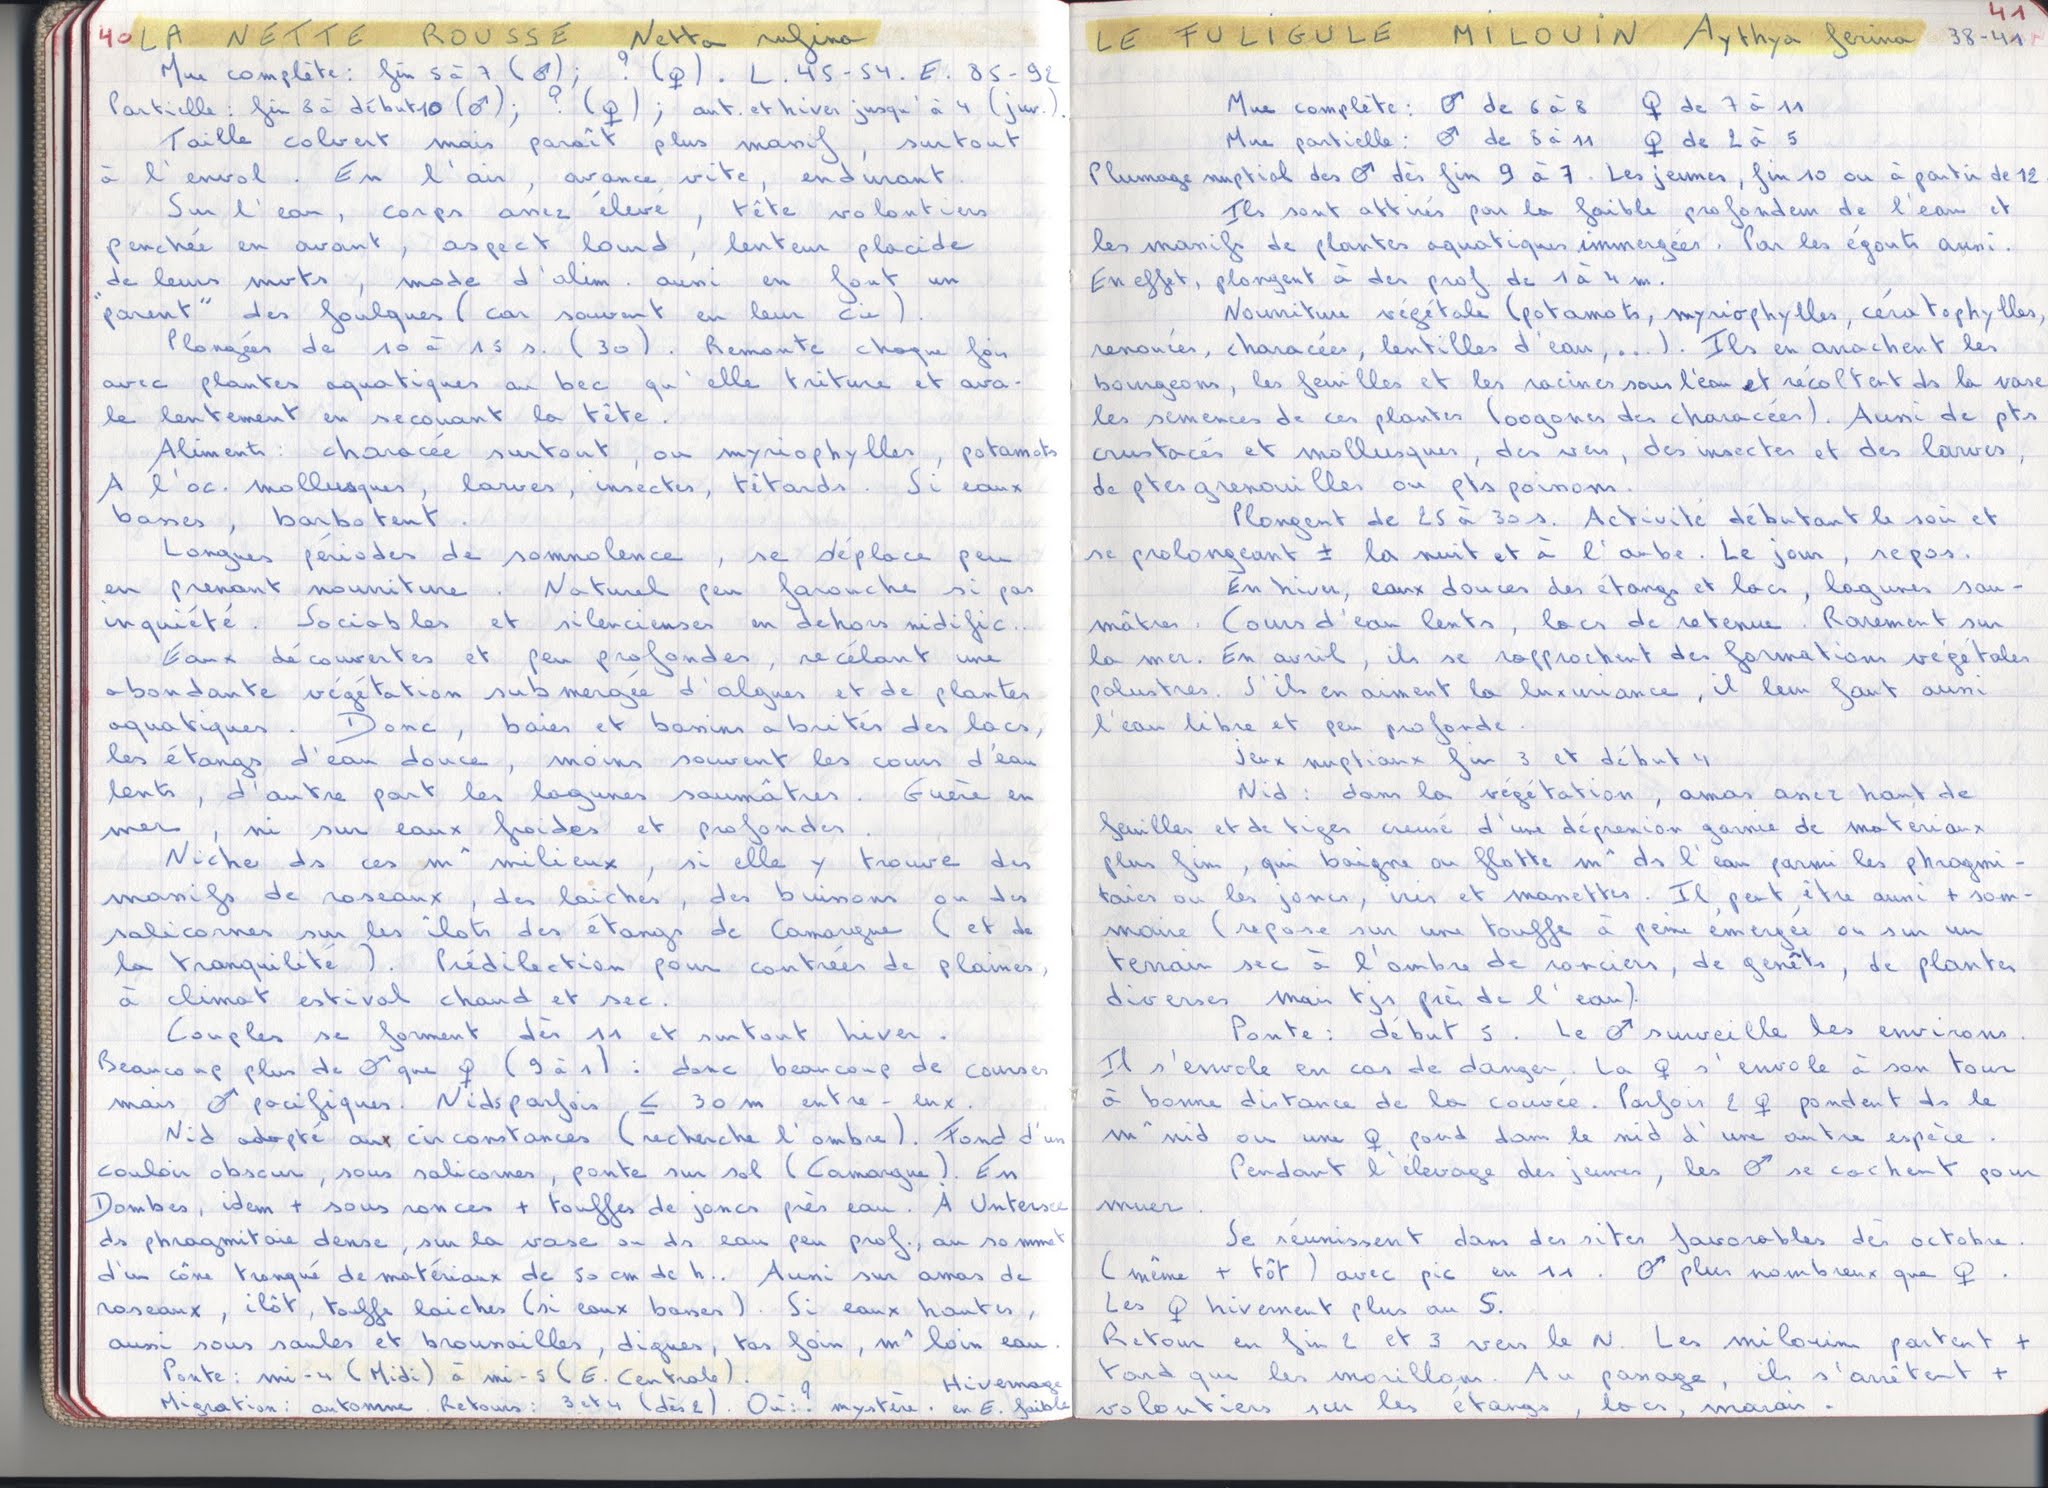 40 LA NETTE ROUSSE Netta rufina
Mue complète : fin 5 à 7 (♂) ; ? (♀). L. 45-54. E. 85-92
Partielle : fin 8 à début 10 (♂) ; ? (♀) ; aut. et hiver jusqu'à 4 (juv.).
Taille colvert mais paraît plus massif, surtout
à l'envol. En l'air, avance vite, endurant.
Sur l'eau, corps assez élevé, tête volontiers
penchée en avant, aspect lourd, lenteur placide
de leurs mvts, mode d'alim. aussi en font un
"parent" des foulques (car souvent en leur cie).
Plongées de 10 à 15 s. (30). Remonte chaque fois
avec plantes aquatiques au bec qu'elle triture et ava-
le lentement en secouant la tête.
Aliments : characée surtout, ou myriophylles, potamots
A l'oc. mollusques, larves, insectes, têtards. Si eaux
basses, barbotent.
Longues périodes de somnolence, se déplace peu
en prenant nourriture. Naturel peu farouche si pas
inquiété. Sociables et silencieuses en dehors nidific..
Eaux découvertes et peu profondes, recélant une
abondante végétation submergée d'algues et de plantes
aquatiques. Donc, baies et bassins abrités des lacs,
les étangs d'eau douce, moins souvent les cours d'eau
lents, d'autre part les lagunes saumâtres. Guère en
mer, ni sur eaux froides et profondes.
Niche ds ces m^ milieux, si elle y trouve des
massifs de roseaux, des laiches, des buissons ou des
salicornes sur les îlots des étangs de Camargue (et de
la tranquilité). Prédilection pour contrées de plaines,
à climat estival chaud et sec.
Couples se forment dès 11 et surtout hiver.
Beaucoup plus de ♂ que ♀ (9 à 1) : donc beaucoup de courses
mais ♂ pacifiques. Nids parfois ≤ 30 m entre-eux.
Nid adapté aux circonstances (recherche l'ombre). Fond d'un
couloir obscur, sous salicornes, ponte sur sol (Camargue). En
Dombes, idem + sous ronces + touffes de joncs près eau. À Untersee
ds phragmitaie dense, sur la vase ou ds eau peu prof., au sommet
d'un cône tronqué de matériaux de 50 cm de h.. Aussi sur amas de
roseaux, ilôt, touffe laiches (si eaux basses). Si eaux hautes,
aussi sous saules et broussailles, digues, tas foin, m^ loin eau.
Ponte : mi-4 (Midi) à mi-5 (E. Centrale).
Migration : automne. Retours : 3 et 4 (dès 2). Où : ? mystère. Hivernage
en E. faible
41
LE FULIGULE MILOUIN Aythya ferina 38-41
Mue complète : ♂ de 6 à 8 ♀ de 7 à 11
Mue partielle : ♂ de 8 à 11 ♀ de 2 à 5
Plumage nuptial des ♂ dès fin 9 à 7. Les jeunes, fin 10 ou à partir de 12.
Ils sont attirés par la faible profondeur de l'eau et
les massifs de plantes aquatiques immergées. Par les égouts aussi.
En effet, plongent à des prof de 1 à 4 m.
Nourriture végétale (potamots, myriophylles, cératophylles,
renouées, characées, lentilles d'eau, ...). Ils en arrachent les
bourgeons, les feuilles et les racines sous l'eau et récoltent ds la vase
les semences de ces plantes (oogones des characées). Aussi de pts
crustacés et mollusques, des vers, des insectes et des larves,
de ptes grenouilles ou pts poissons.
Plongent de 25 à 30 s. Activité débutant le soir et
se prolongeant ± la nuit et à l'aube. Le jour, repos.
En hiver, eaux douces des étangs et lacs, lagunes sau-
mâtres. Cours d'eau lents, lacs de retenue. Rarement sur
la mer. En avril, ils se rapprochent des formations végétales
palustres. S'ils en aiment la luxuriance, il leur faut aussi
l'eau libre et peu profonde.
Jeux nuptiaux fin 3 et début 4
Nid : dans la végétation, amas assez haut de
feuilles et de tiges creusé d'une dépression garnie de materiaux
plus fins, qui baigne ou flotte m^ ds l'eau parmi les phragmi-
taies ou les joncs, iris et massettes. Il peut être aussi + som-
maire (repose sur une touffe à peine émergée ou sur un
terrain sec à l'ombre de ronciers, de genêts, de plantes
diverses mais tjs près de l'eau).
Ponte : début 5. Le ♂ surveille les environs.
Il s'envole en cas de danger. La ♀ s'envole à son tour
à bonne distance de la couvée. Parfois 2 ♀ pondent ds le
m^ nid ou une ♀ pond dans le nid d'une autre espèce.
Pendant l'élevage des jeunes, les ♂ se cachent pour
muer.
Se réunissent dans des sites favorables dès octobre.
(même + tôt) avec pic en 11. ♂ plus nombreux que ♀.
Les ♀ hivernent plus au S.
Retour en fin 2 et 3 vers le N. Les milouins partent +
tard que les morillons. Au passage, ils s'arrêtent +
volontiers sur les étangs, lacs, marais.